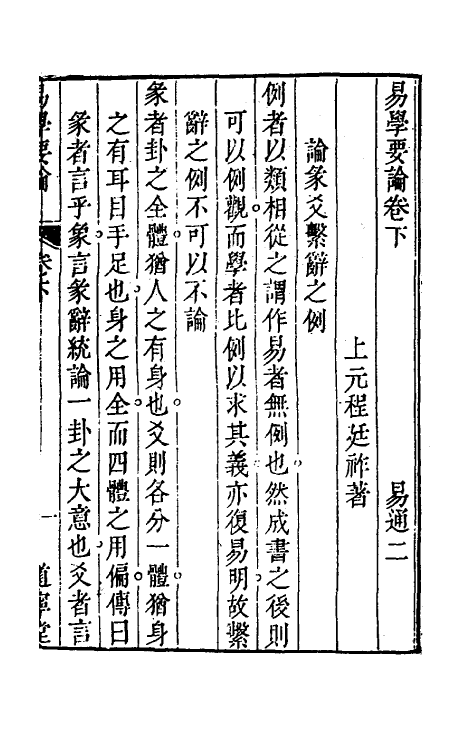 易學要論卷下 易通二
上元程廷祚著
論彖爻繫辭之例
例者以類相從之謂作易者無例也然成書之後則
可以例觀而學者比例以求其義亦復易明故繫
辭之例不可以不論
彖者卦之全體猶人之有身也爻則各分一體猶身
之有耳目手足也身之用全而四體之用偏傳曰
彖者言乎象言彖辭統論一卦之大意也爻者言
易學要論 卷下 一 道寧堂